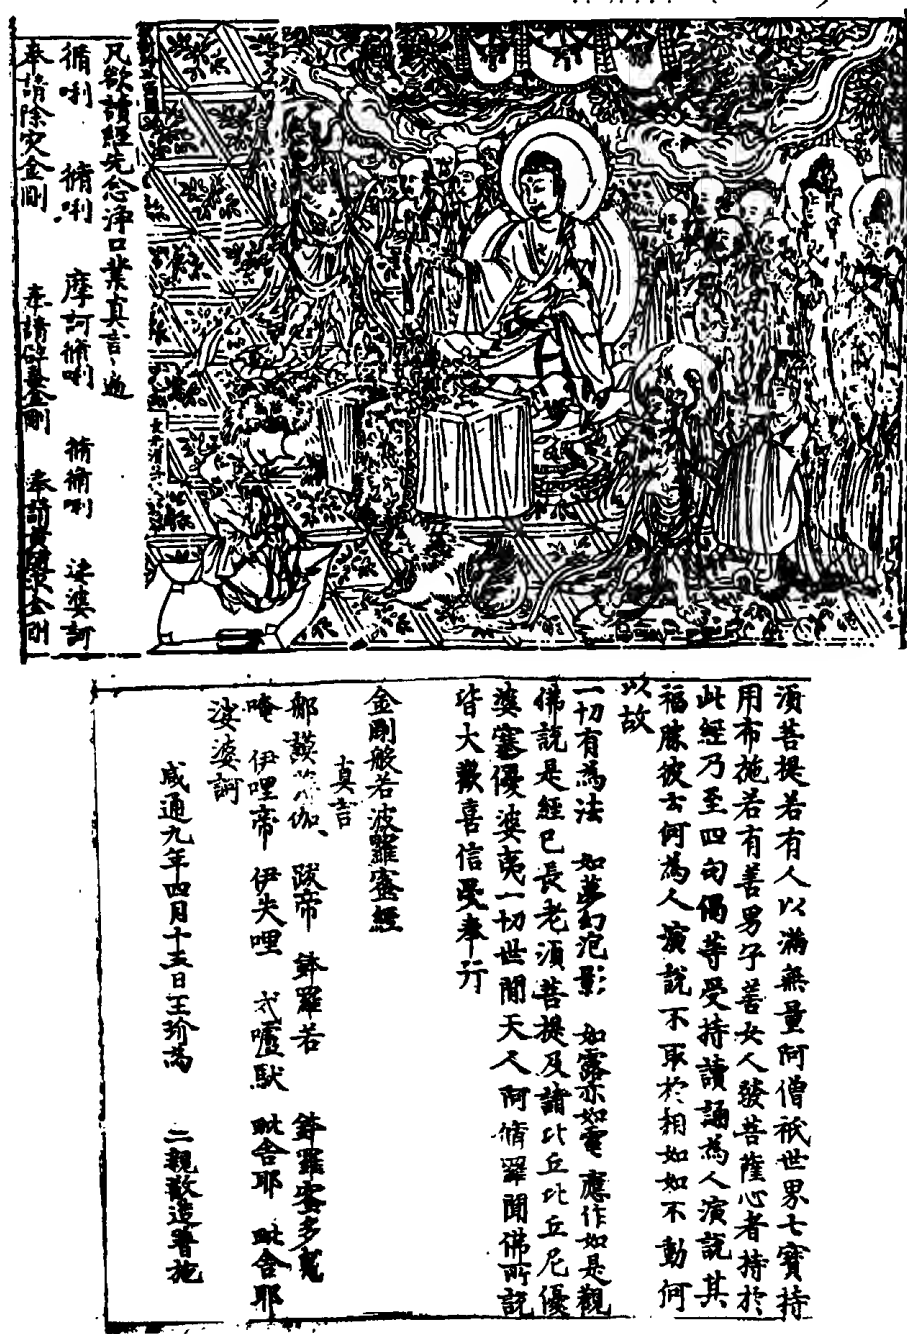 凡欲讀經先念淨口業真言一遍
脩唎 脩唎 摩訶脩唎 脩脩唎 娑婆訶
奉請除灾金剛 奉請辟毒金剛 奉請金剛
須菩提若有人以滿無量阿僧祇世界七寶持
用布施若有善男子善女人發菩薩心者持於
此經乃至四句偈等受持讀誦為人演說其
福勝彼云何為人演說不取於相如如不動何
以故
一切有為法 如夢幻泡影 如露亦如電 應作如是觀
佛說是經已長老須菩提及諸比丘比丘尼優
婆塞優婆夷一切世間天人阿脩羅聞佛所說
皆大歡喜信受奉行
金剛般若波羅蜜經
真言
那謨薄伽、 跋帝 鉢羅若 鉢羅蜜多曳
唵 伊哩帝 伊失哩 戍嚧馱 毗舍耶 毗舍耶
娑婆訶
咸通九年四月十五日王玠為 二親敬造普施